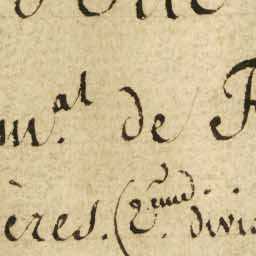 m.al de F
ères. (2.eme divis